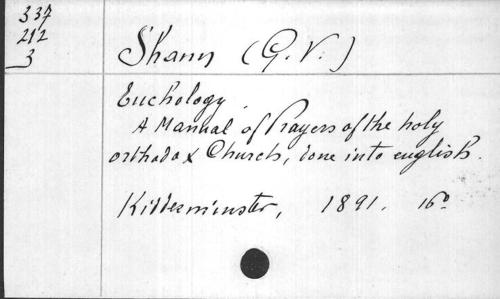 337
212
3
Shann (G. V.)
Euchology.
A Manual of Prayers of the holy
orthodox Church, done into english.
Kidderminster, 1891. 16º